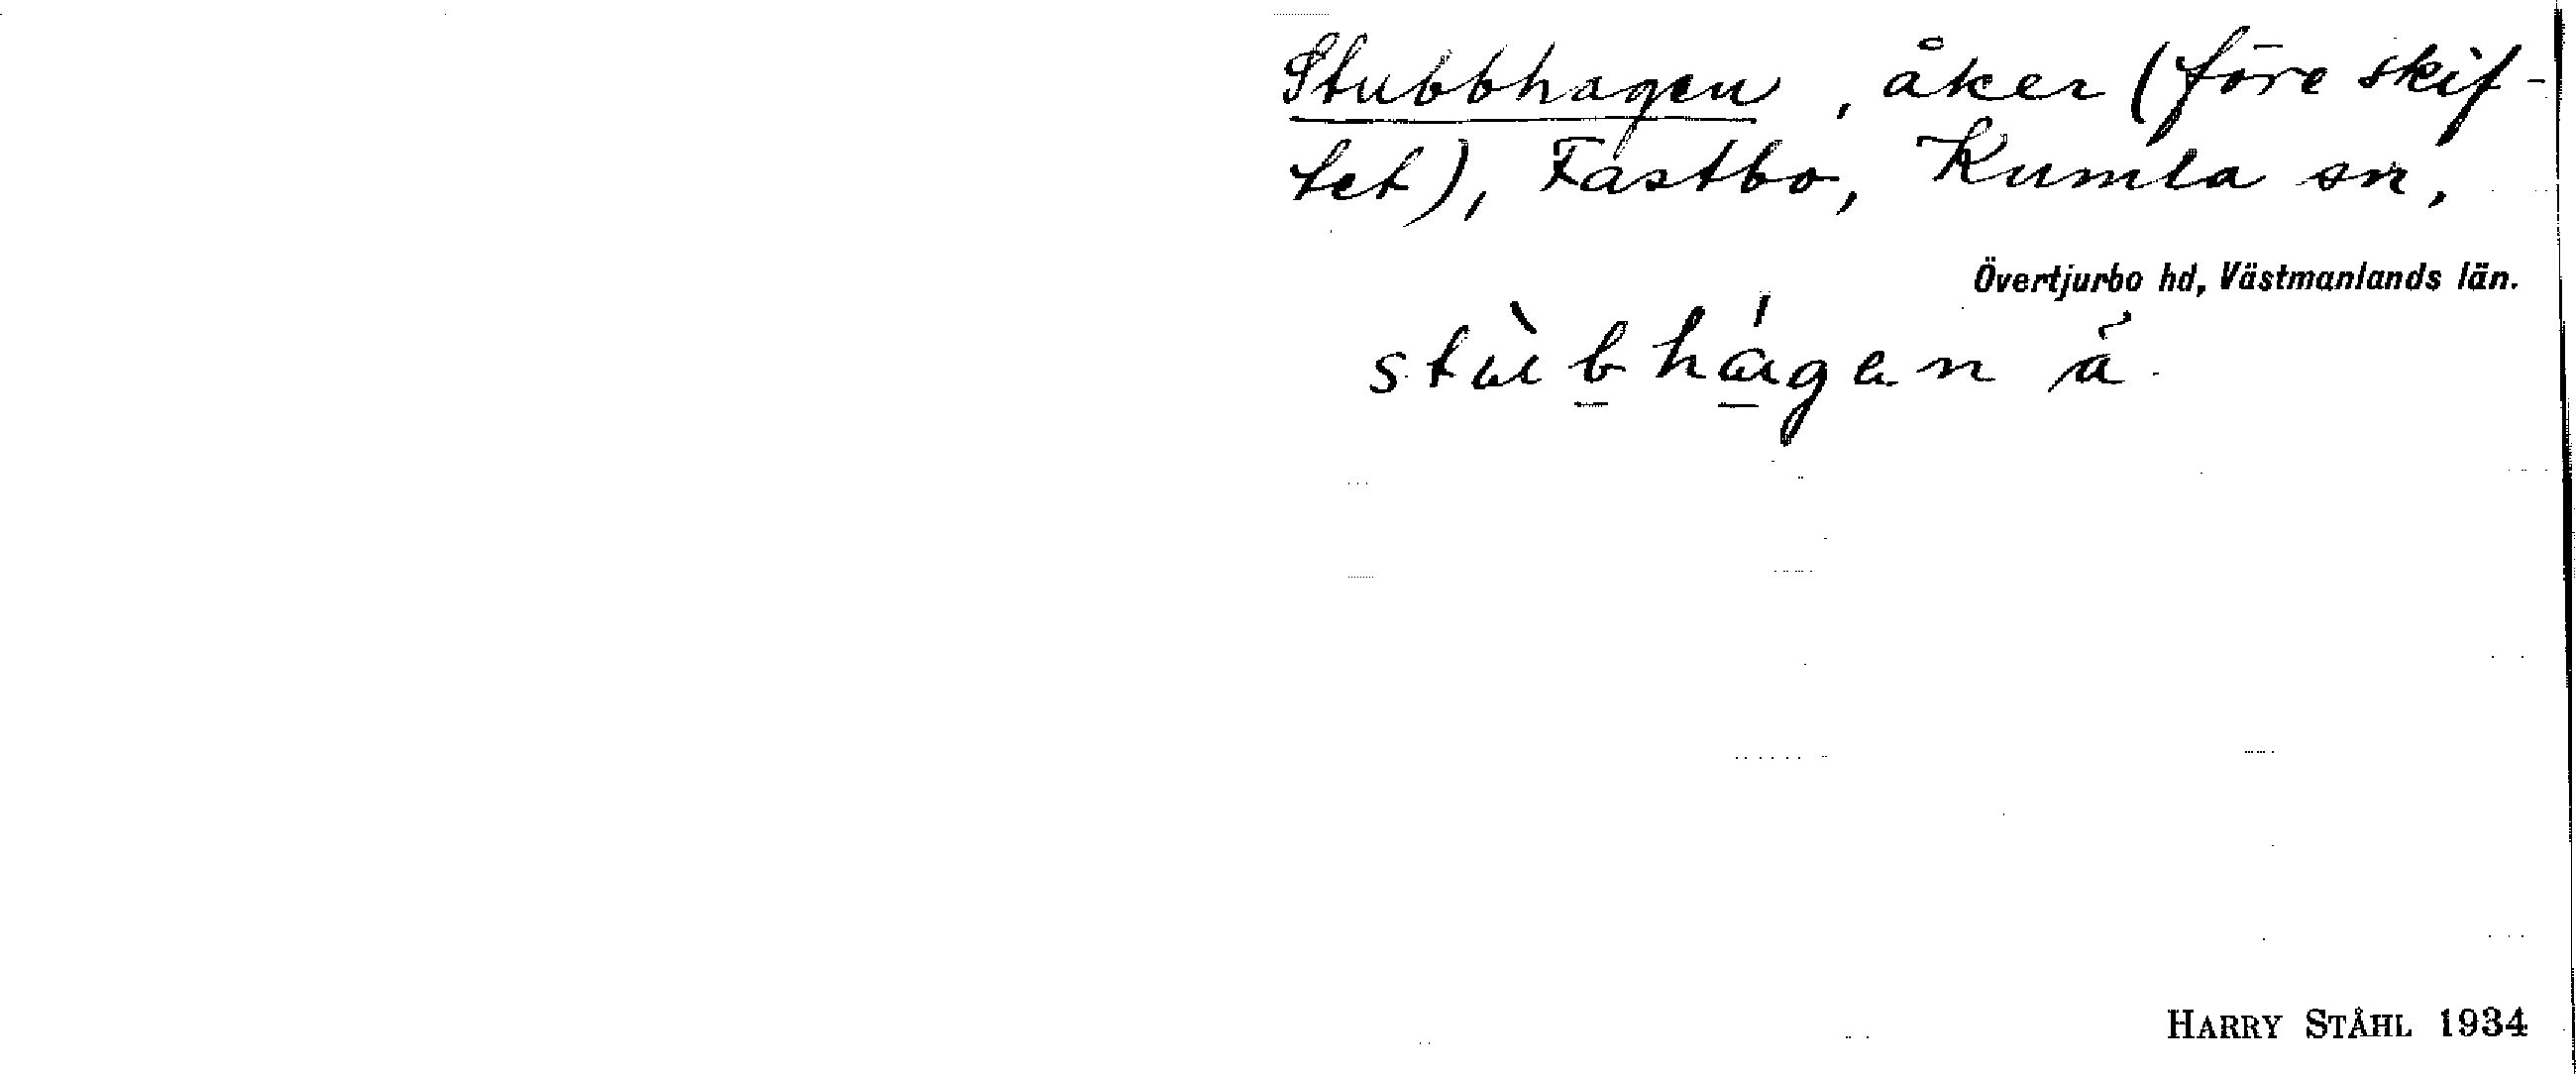 Stubbhagen, åker (före skif-
tet), Fastbo, Kumla sn,
Övertjurbo hd, Västmanlands län.
stùbhágen ä
HARRY STÅHL 1934